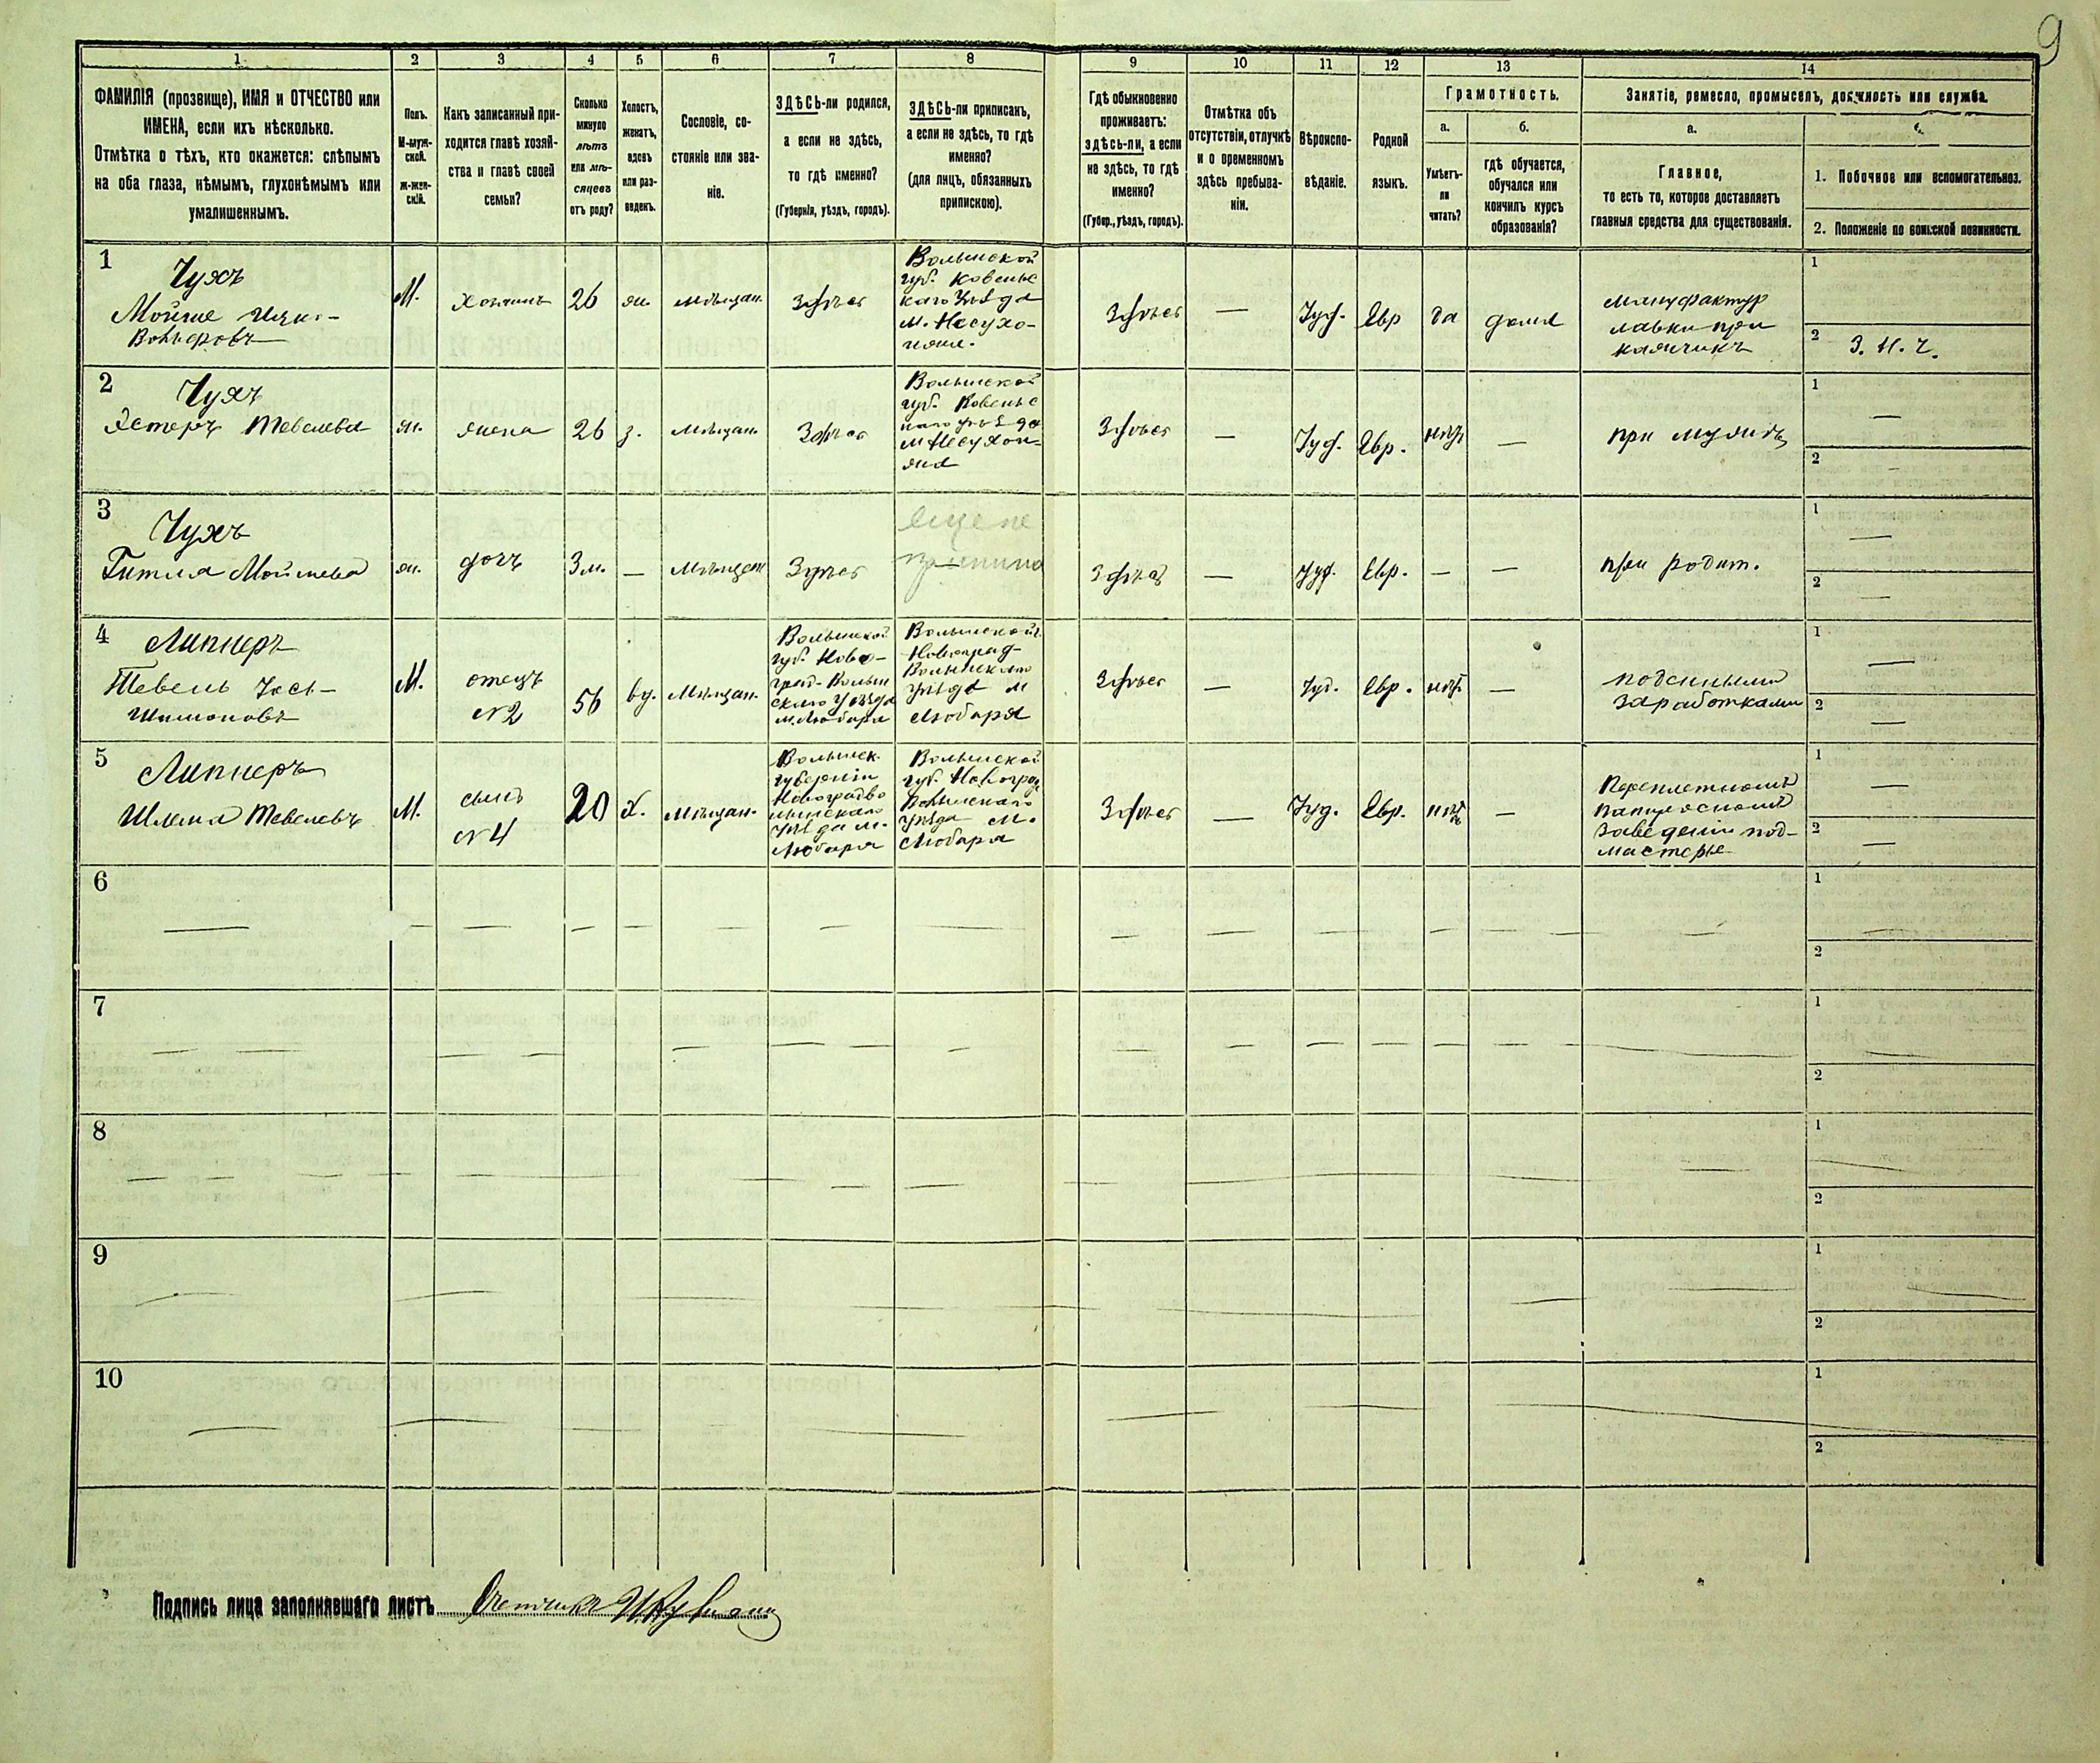 9
1
2
3
4
5
6
7
8
9
10
11
12
13
14
ФАМИЛІЯ (прозвище), ИМЯ и ОТЧЕСТВО или
ИМЕНА, если ихъ нѣсколько.
Отмѣтка о тѣхъ, кто окажется: слѣпымъ
на оба глаза, нѣмымъ, глухонѣмымъ или
умалишеннымъ.
Полъ.
М-муж-
ской.
ж-жен-
скій.
Какъ записанный при-
ходится главѣ хозяй-
ства и главѣ своей
семьи?
Сколько
минуло
лѣтъ
или мѣ-
сяцевъ
отъ роду?
Холостъ,
женатъ,
вдовъ
или раз-
веденъ.
Сословіе, со-
стояніе или зва-
ніе.
ЗДѢСЬ-ли родился,
а если не здѣсь,
то гдѣ именно?
(Губернія, уѣздъ, городъ).
ЗДѢСЬ-ли приписанъ,
а если не здѣсь, то гдѣ
именно?
(для лицъ, обязанныхъ
припискою).
Гдѣ обыкновенно
проживаетъ:
здѣсь-ли, а если
не здѣсь, то гдѣ
именно?
(Губер., уѣздъ, городъ).
Отмѣтка объ
отсутствіи, отлучкѣ
и о временномъ
здѣсь пребыва-
ніи.
Вѣроиспо-
вѣданіе.
Родной
языкъ.
Грамотность.
а.
Умѣетъ-
ли
читать?
б.
гдѣ обучается,
обучался или
кончилъ курсъ
образованія?
Занятіе, ремесло, промыселъ, должность или служба.
а.
Главное,
то есть то, которое доставляетъ
главныя средства для существованія.
1. Побочное или вспомогательное.
2. Положеніе по воинской повинности.
1
Чухъ
Мойше Ицко-
Вольфовъ
М.
Хозяинъ
26
жен.
мѣщан.
Здѣсь
Волынской
губ. Ковельс
каго Уѣзда
м. Несухо-
ижи.
Здѣсь
—
Іуд.
Евр
да
дома
мануфактур
лавки при
кащикъ
1
2 З. Н. Ч.
2
Чухъ
Эстеръ Тевелева
ж.
жена
26
з.
мѣщан.
Здѣсь
Волынской
губ. Ковельс
каго Уѣзда
м Несухои-
жа
Здѣсь
—
Іуд.
Евр.
нѣтъ
—
при мужѣ
1 —
2 —
3
Чухъ
Гитля Мойшева
ж.
дочь
3 м.
—
Мѣщан
Здѣсь
еще не
Здѣсь
—
Іуд.
Евр.
—
—
при родит.
1 —
2 —
4
Липнеръ
Тевель Іось-
Шимоновъ
М.
отецъ
№2
56
вд.
Мѣщан.
Волынской
губ. Ново-
град-Волын
скаго Уѣзда
м. Любаря
Волынской г.
Новоград-
Волынскаго
уѣзда м
Любаря
Здѣсь
—
Іуд.
Евр.
нѣтъ
—
поденными
заработками
1 —
2 —
5
Липнеръ
Шлема Тевелевъ
М.
сынъ
№4
20
х.
мѣщан.
Волынск.
губерніи
Новоградво
лынскаго
уѣзда м.
Любаря
Волынской
губ. Новоград
Волынскаго
уѣзда м.
Любаря
Здѣсь
—
Іуд.
Евр.
нѣтъ
—
Переплетномъ
папиросномъ
заведеніи под-
мастерье
1 —
2 —
6
1
2
7
1
2
8
1
2
9
1
2
10
1
2
Подпись лица заполнявшаго листъ Счетчикъ